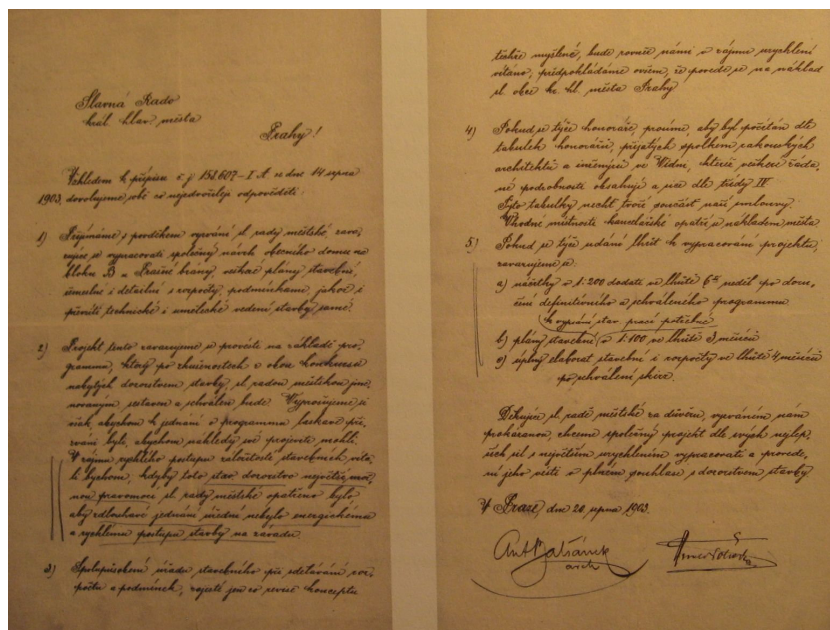 Slavná Rado
král. hlav. města
Prahy!
Vzhledem k přípisu č. j. 151.607-I A. ze dne 14. srpna
1903, dovolujeme si co nejzdvořileji odpověděti:
1) Přijímáme s povděkem vyzvání sl. rady městské
se vypracovati společný návrh obecního domu na
bloku B u Prašné brány, veškeré plány stavební,
detailní s rozpočty, podmínkami, jakož i
převzíti technické i umělecké vedení stavby samé.
2) Projekt tento zavazujeme se provésti na základě pro-
grammu, který po zkušenostech z obou konkursů
nabytých dozorstvem stavby, sl. radou městskou jme-
novaným, sestaven a schválen bude. Vyprošujeme si
však, abychom k jednání o programmu laskavě při-
zváni byli, abychom náhledy své projeviti mohli.
V zájmu rychlého postupu záležitostí stavebních víta-
li bychom, kdyby toto stav. dozorstvo největší mož-
nou pravomocí sl. rady městské opatřeno bylo,
aby zdlouhavé jednání úřední nebylo energickému
a rychlému postupu stavby na závadu.
3) Spolupůsobení úřadu stavebního při vzdělávání roz-
počtu a podmínek, pojaté jen co revise konceptu
téhže myšlené, bude rovněž námi v zájmu urychlení
vítáno, předpokládáme ovšem, že povede se na náklad
sl. obce kr. hl. města Prahy.
4) Pokud se týče honoráře, prosíme, aby byl počítán dle
tabulek honorářů, přijatých spolkem rakouských
architektů a inženýrů ve Vídni, kteréž veškeré žáda-
né podrobnosti obsahují a sice dle třídy IV.
Tyto tabulky nechť tvoří součást naší smlouvy.
Vhodné místnosti kancelářské opatří se nákladem města.
5) Pokud se týče udání lhůt k vypracování projektu,
zavazujeme se:
a) náčrtky v 1:200 dodati ve lhůtě 6ti neděl po doru-
čení definitivního a schváleného programmu
k vyzvání stav. prací potřebné
b) plány stavební v 1:100 ve lhůtě 3 měsíců
c) úplný elaborat stavební i rozpočty ve lhůtě 4 měsíců
po schválení skizz.
Děkujíce sl. radě městské za důvěru, vyzváním nám
prokázanou, chceme společný projekt dle svých nejlep-
ších sil s největším urychlením vypracovati a provede-
ní jeho vésti v plném souhlasu s dozorstvem stavby.
V Praze, dne 20. srpna 1903.
Ant Balšánek
arch